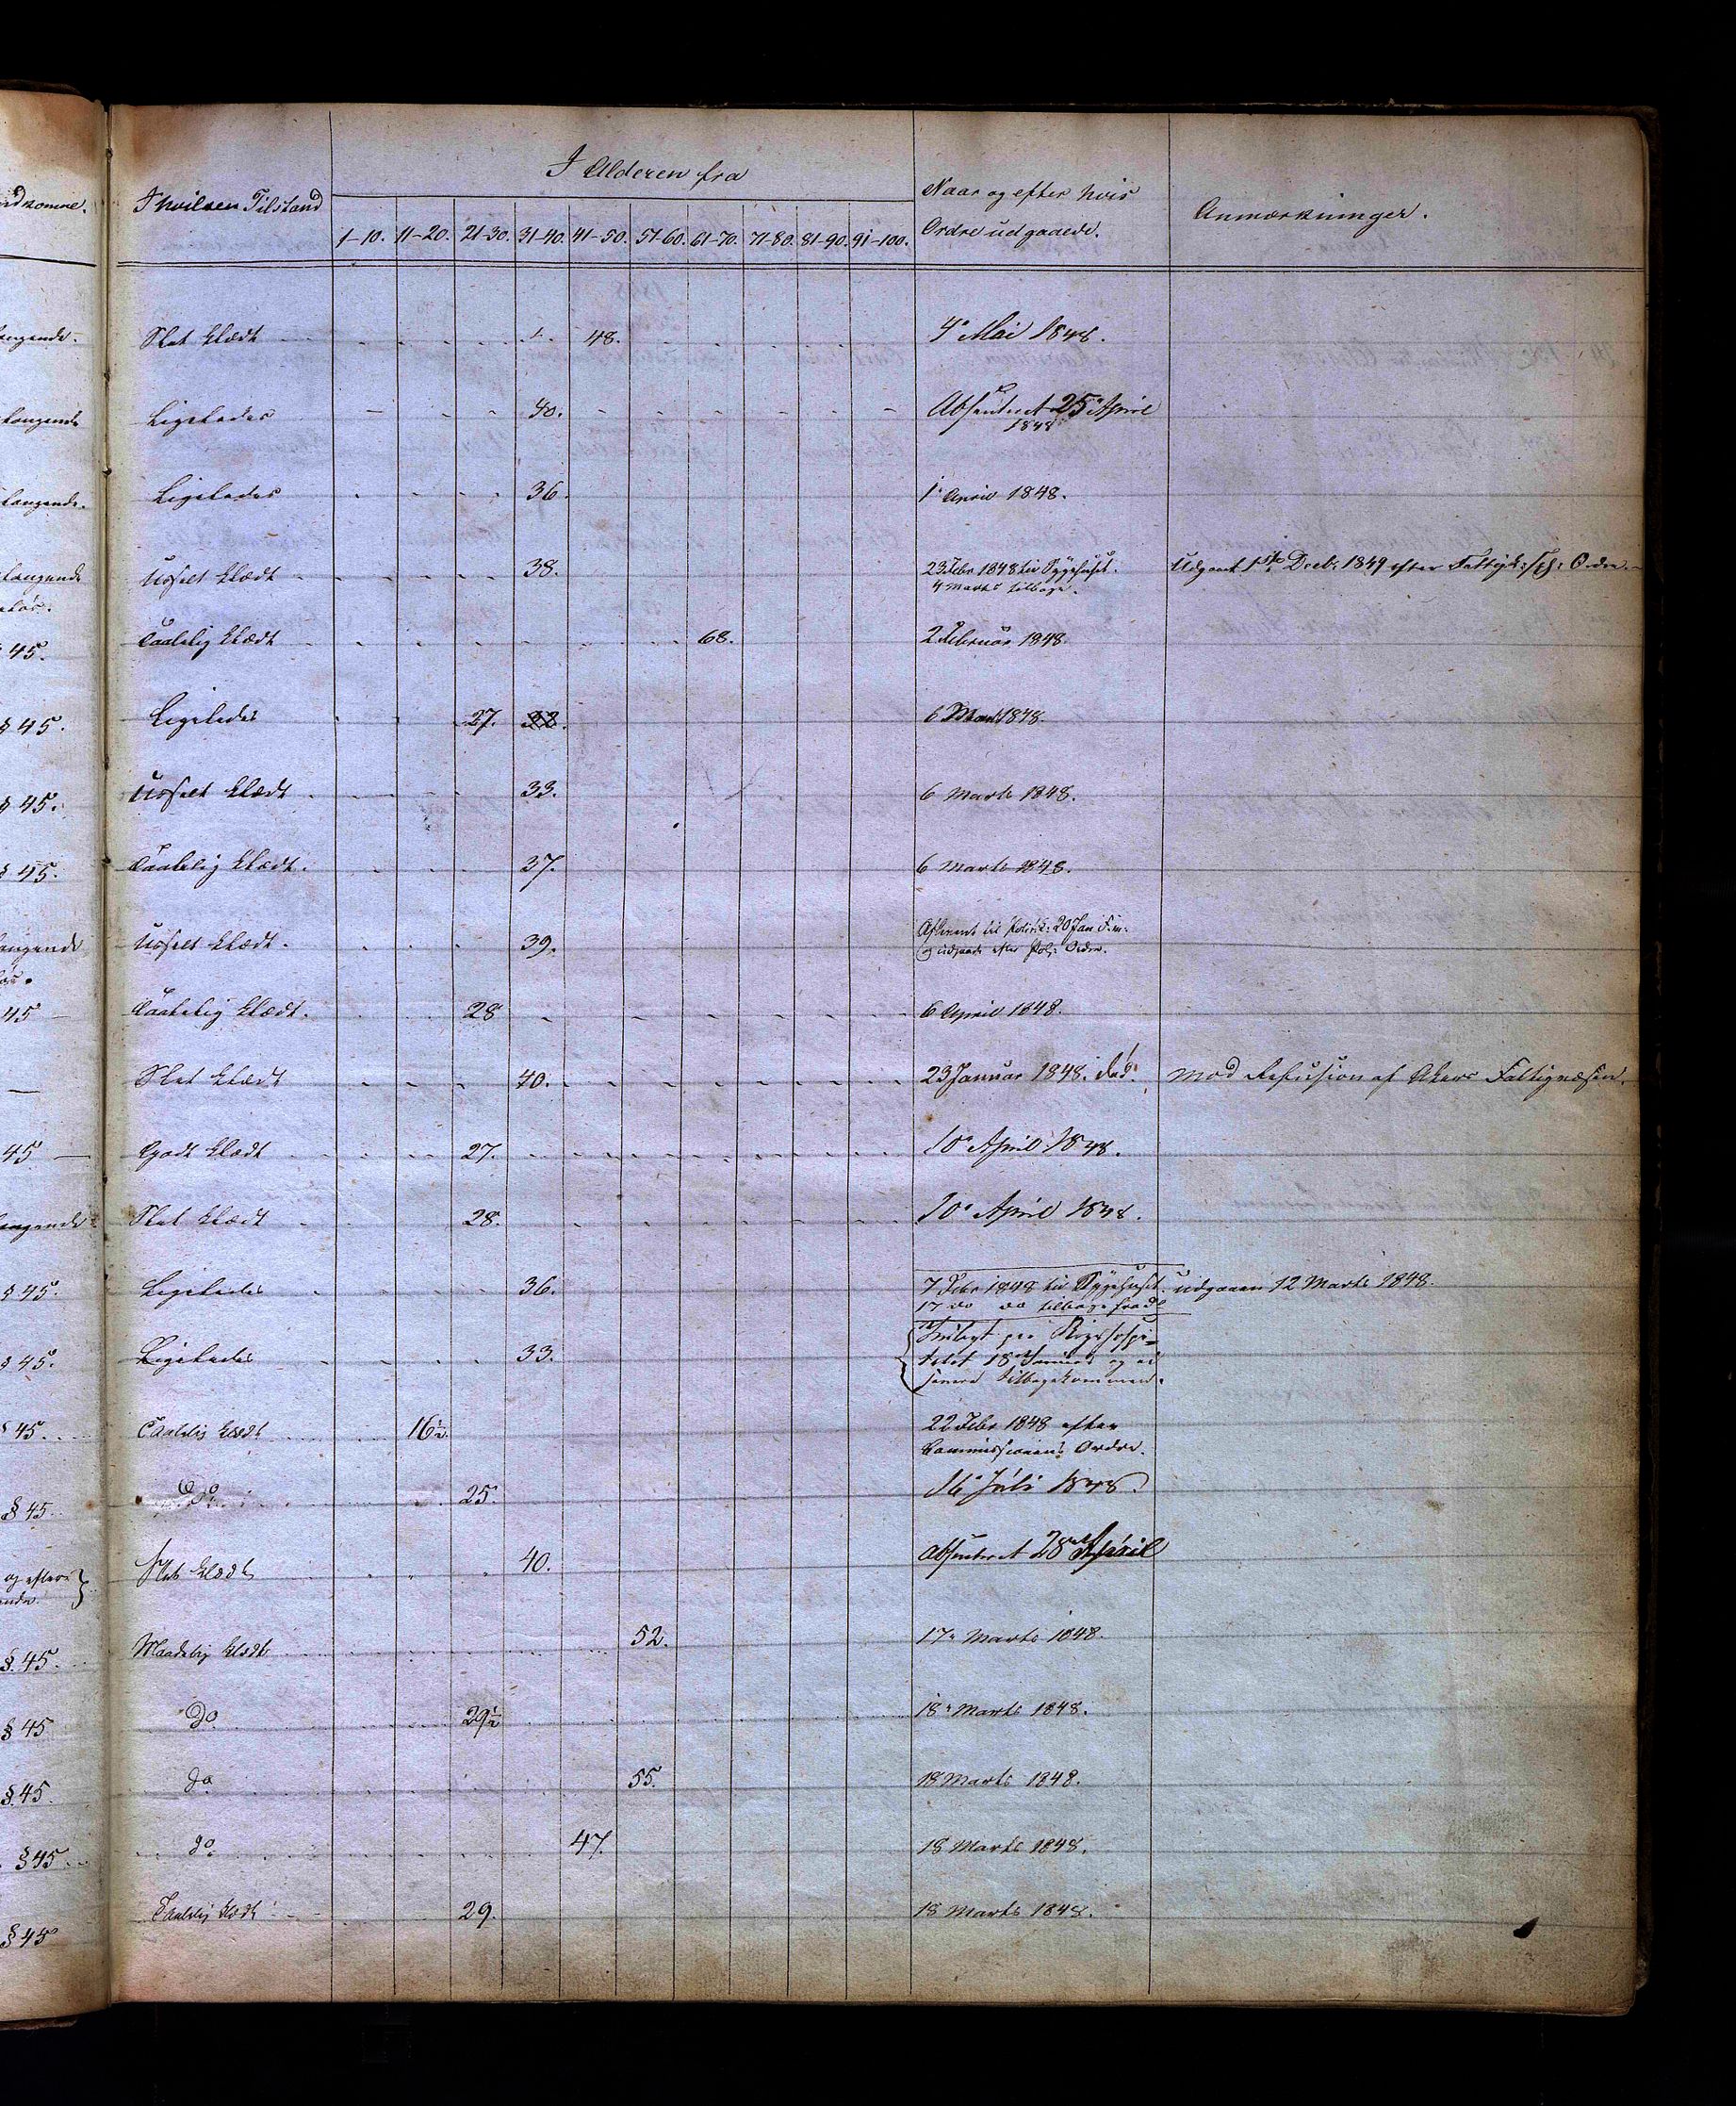 I hvilken Tilstand
I Alderen fra
1-10. 11-20. 21-30. 31-40. 41-50. 51-60. 61-70. 71-80. 81-90. 91-100.
Naar og efter hvis
Ordre udgaaede.
Anmærkninger.
Slet klædt 48. 4de Mai 1848.
Ligeledes 40. Absenteret 25 April
1848
Ligeledes 36. 1 April 1848.
Usselt klædt 38. 23 Febr 1848 til Sygehuset. Udgaaet 1ste Decbr 1849 efter Ordre.
4 Marts tilbage.
Taalelig klædt 68. 2 Februar 1848.
Ligeledes 27. 6 Marts 1848.
Usselt klædt 33. 6 Marts 1848.
Taalelig klædt. 37. 6 Marts 1848.
Usselt klædt. 39. til 20 Jan
og udgaaet efter Ordre.
Taalelig klædt. 28 6 April 1848.
Slet klædt 40. 23 Januar 1848. død. mod Refusion af Akers Fattigvæsen.
Godt klædt 27. 10 April 1848.
Slet klædt 28. 10 April 1848.
Ligeledes 36. 7 Febr 1848 til Sygehuset. udgaaen 12 Marts 1848.
17 do do tilbage
Ligeledes 33. Indlagt paa Rigshospi-
talet 18 Januar og ei
senere tilbagekommen.
Taalelig klædt 16½. 22 Febr 1848 efter
Commissionens Ordre.
Do 25. 16 Juli 1848.
Slet klædt 40. absenteret 28 April
Maadelig klædt 52. 17 Marts 1848.
Do 29½ 18 Marts 1848.
do 55. 18 Marts 1848.
do 47. 18 Marts 1848.
Taalelig klædt 29. 18 Marts 1848.
§ 45.
§ 45.
§ 45.
§ 45.
45
45
§ 45.
§ 45.
§ 45.
§ 45
og efter
§. 45.
§ 45
§. 45
§ 45
§ 45